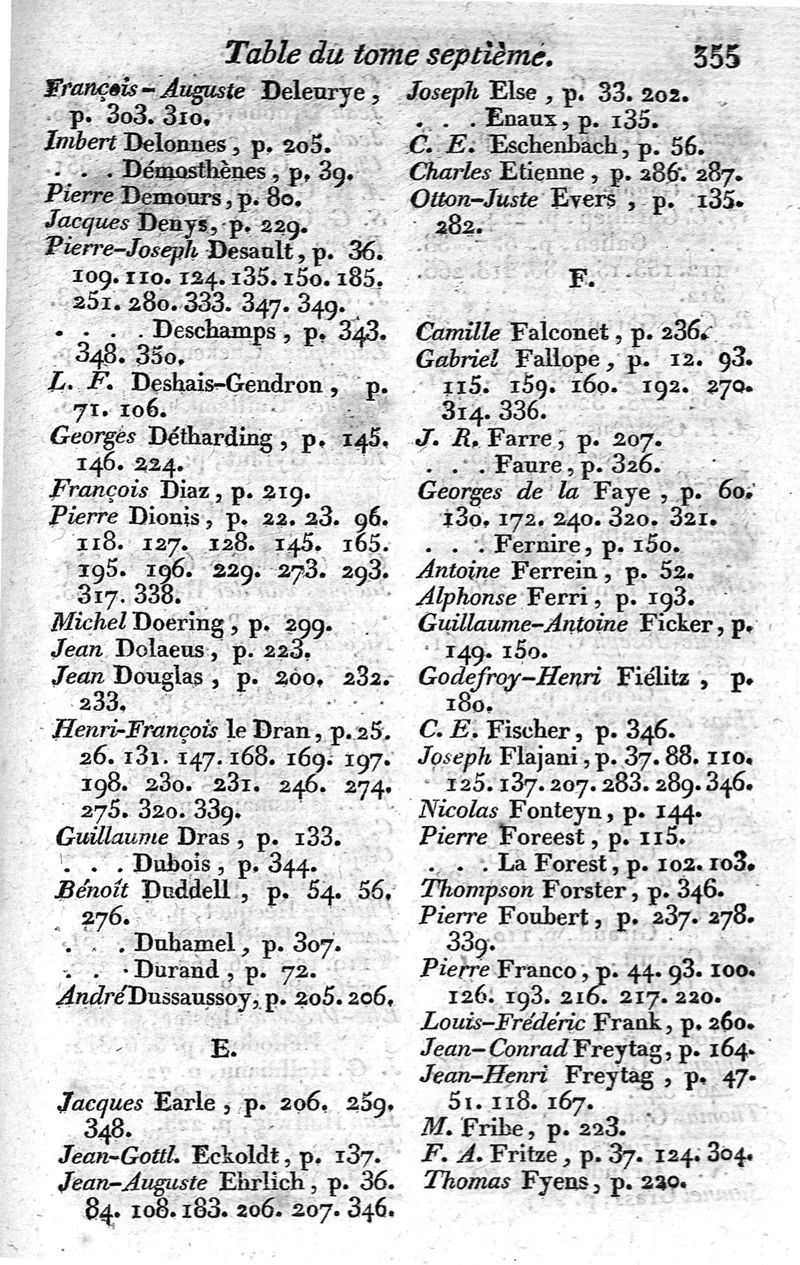 Table du tome septième. 355
François-Auguste Deleurye,
p. 303. 310.
Imbert Delonnes, p. 205.
. . . Démosthènes, p. 39.
Pierre Demours, p. 80.
Jacques Denys, p. 229.
Pierre-Joseph Desault, p. 36.
109. 110. 124. 135. 150. 185.
251. 280. 333. 347. 349.
. . . . Deschamps, p. 343.
348. 350.
L. F. Deshais-Gendron, p.
71. 106.
Georges Détharding, p. 145.
146. 224.
François Diaz, p. 219.
Pierre Dionis, p. 22. 23. 96.
118. 127. 128. 145. 165.
195. 196. 229. 273. 293.
317. 338.
Michel Doering, p. 299.
Jean Dolaeus, p. 223.
Jean Douglas, p. 200. 232.
233.
Henri-François le Dran, p. 25.
26. 131. 147. 168. 169. 197.
198. 230. 231. 246. 274.
275. 320. 339.
Guillaume Dras, p. 133.
. . . Dubois, p. 344.
Bénoît Duddell, p. 54. 56.
276.
. . . Duhamel, p. 307.
. . . Durand, p. 72.
André Dussaussoy, p. 205. 206.
E.
Jacques Earle, p. 206. 259.
348.
Jean-Gottl. Eckoldt, p. 137.
Jean-Auguste Ehrlich, p. 36.
84. 108. 183. 206. 207. 346.
Joseph Else, p. 33. 202.
. . . Enaux, p. 135.
C. E. Eschenbach, p. 56.
Charles Etienne, p. 286. 287.
Otton-Juste Evers, p. 135.
282.
F.
Camille Falconet, p. 236.
Gabriel Fallope, p. 12. 93.
115. 159. 160. 192. 270.
314. 336.
J. R. Farre, p. 207.
. . . Faure, p. 326.
Georges de la Faye, p. 60.
130. 172. 240. 320. 321.
. . . Fernire, p. 150.
Antoine Ferrein, p. 52.
Alphonse Ferri, p. 193.
Guillaume-Antoine Ficker, p.
149. 150.
Godefroy-Henri Fiélitz, p.
180.
C. E. Fischer, p. 346.
Joseph Flajani, p. 37. 88. 110.
125. 137. 207. 283. 289. 346.
Nicolas Fonteyn, p. 144.
Pierre Foreest, p. 115.
. . . La Forest, p. 102. 103.
Thompson Forster, p. 346.
Pierre Foubert, p. 237. 278.
339.
Pierre Franco, p. 44. 93. 100.
126. 193. 216. 217. 220.
Louis-Frédéric Frank, p. 260.
Jean-Conrad Freytag, p. 164.
Jean-Henri Freytag, p. 47.
51. 118. 167.
M. Fribe, p. 223.
F. A. Fritze, p. 37. 124. 304.
Thomas Fyens, p. 220.